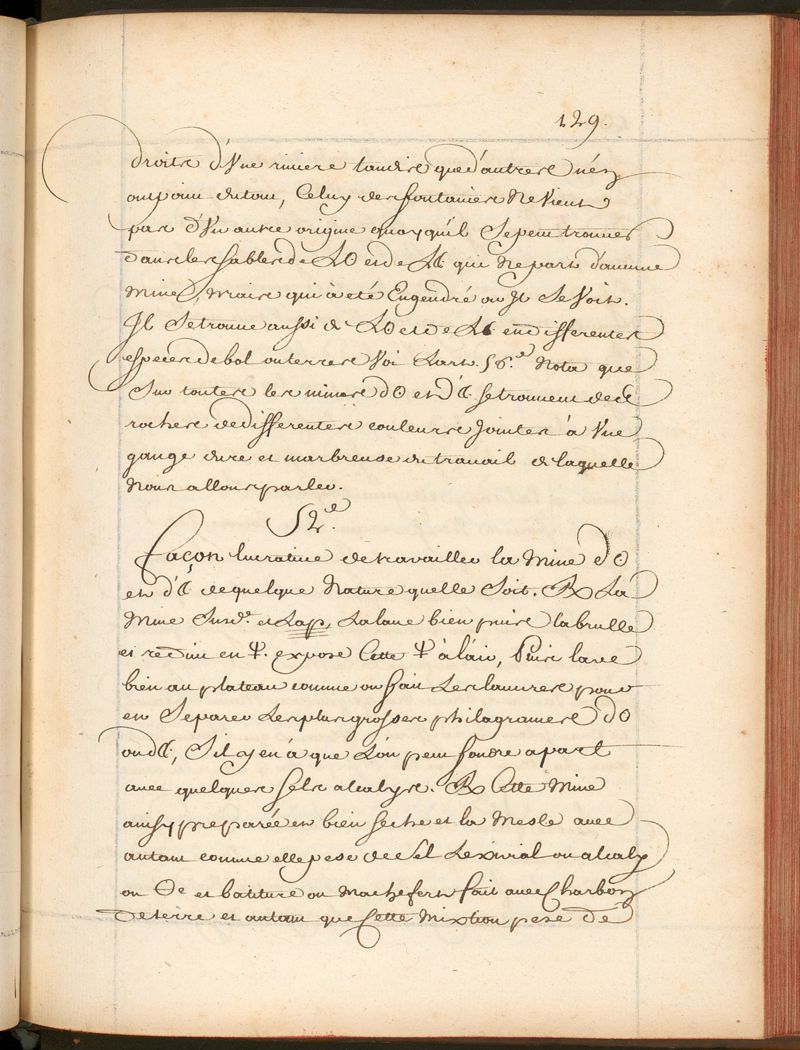 129.
droite d'Vne riviere tandis que d'autres n'en
ont point du tout, Celuy des fontaines Ne Vient
pas d'Vn autre origine quoy qu'il Se peut trouver
dans les sables de L'☉ et de L'☾ qui Ne part d'aucune
Mine, Mais qui à eté Engendré ou Jl Se Voit.
Jl Se trouve aussi de L'☉ et de L'☾ en differentes
especes de bol ou terres Voi L'art. 56.e Nota que
Sur toutes les mines d'☉ et d'☾ se trouvent des
roches de differentes couleurs Jointes à Vne
gangue dure et marbreuse du travail de laquelle
Nous allons parler.
52.e
Façon lucrative de travailler la Mine d'☉
et d'☾ de quelque Nature quelle Soit. ℞ La
Mine Susd.e et Lap, La lave bien puis la brulle
et reduit en 🜍. expose Cette 🜍 à l'air, Puis lave
bien au plateau comme on fait Les lavures pour
en Separer Les plus grosses philagrames d'☉
ou d'☾, S'il y en à que L'on peut fondre apart
avec quelques Sels alcalys. ℞ Cette Mine
ainsy preparée et bien seche et la Mesle avec
autant comme elle pese de Sel Lexivial ou alcaly
ou et batiture ou Machefert fait avec Charbon
De terre et autant que Cette Mixtion pese de